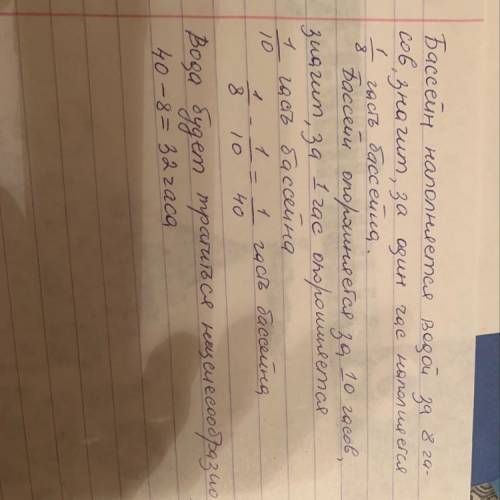 Бассейн наполняется водой за 8 ча-
сов, значит, за один час наполняется
1/8 часть бассейна.
Бассейн опорожняется за 10 часов,
значит, за 1 час опорожняется
1/10 часть бассейна
1/8 - 1/10 = 1/40 часть бассейна
Вода будет тратиться нецелесообразно
40 - 8 = 32 часа